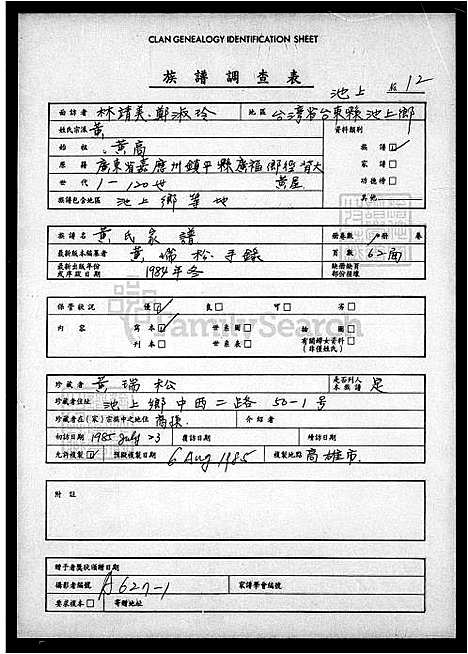 CLAN GENEALOGY IDENTIFICATION SHEET
族譜調查表
池上 12
面訪者 林靖美.鄭淑玲 地區 台灣省台東縣池上鄉
姓氏宗派 黃 資料類別
始祖 黃喬 族譜☑
原籍 廣東省嘉應州鎮平縣廣福鄉徑背大黃屋 家譜□
世代 1-120世 功德榜□
族譜包含地區 池上鄉等地 其他
族譜名 黃氏家譜 冊卷數 1冊 卷
最新版本編纂者 黃瑞松手錄 頁數 62面
最新出版年份或序跋日期 1984年冬 缺冊缺頁部份接壤
保管狀況 優☑ 良□ 可□ 劣□
內容 寫本☑ 世系圖□ 繪圖□
刊本□ 世系表□ 有關婦女資料□
(非僅姓氏)
珍藏者 黃瑞松 是否列入本族譜 是
珍藏者住址 池上鄉中西二路50-1號
珍藏者在(家)宗族中之地位 裔孫 介紹者
初訪日期 1985 July 23 複訪日期 續訪日期
允許複製☑ 預擬複製日期 6 Aug 1985 複製地點 高雄市.
附註
贈予者獎狀頒贈日期
攝影者編號 A627-1 家譜學會編號
要求複本□ 寄贈地址
FamilySearch